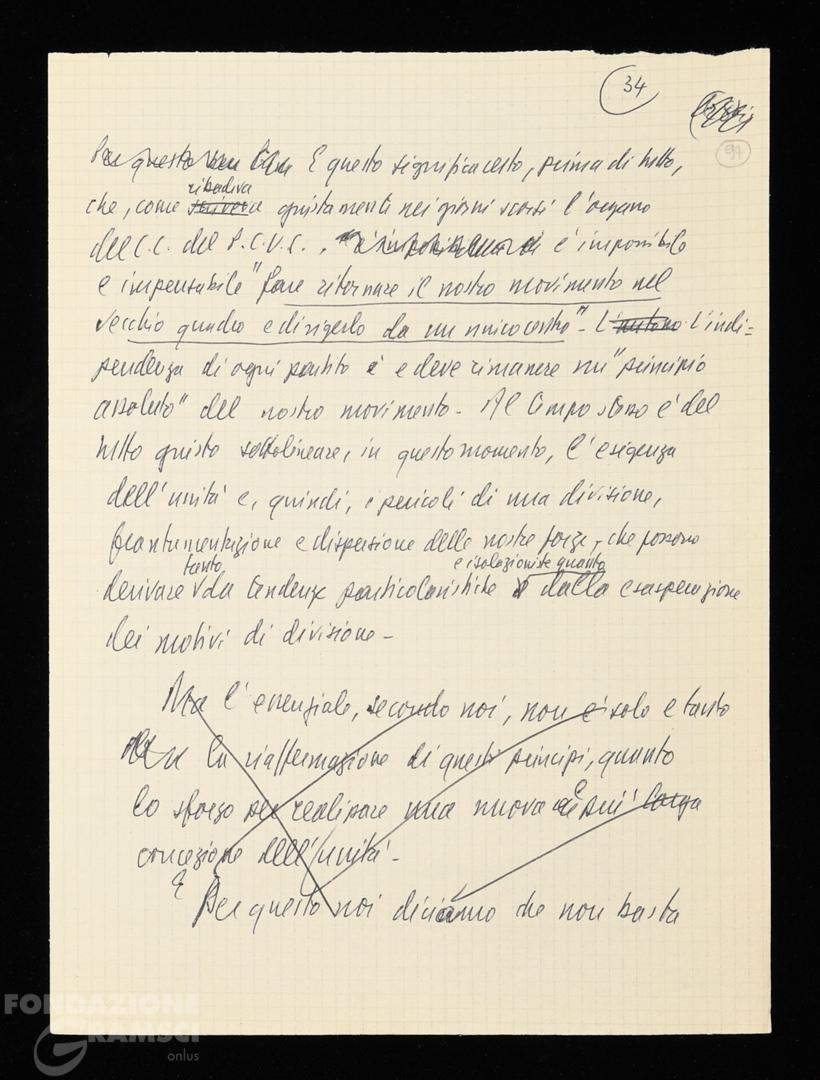 34
94
Per questo E questo significa certo, prima di tutto,
ribadiva
che, come scriveva giustamente nei giorni scorsi l'organo
del C.C. del P.C.U.S., è impossibile
e impensabile "fare ritornare il nostro movimento nel
vecchio quadro e dirigerlo da un unico centro" - L'indi=
pendenza di ogni partito è e deve rimanere un "principio
assoluto" del nostro movimento - Al tempo stesso è del
tutto giusto sottolineare, in questo momento, l'esigenza
dell'unità e, quindi, i pericoli di una divisione,
frantumentazione e dispersione delle nostre forze, che possono
tanto e isolazioniste quanto
derivare da tendenze particolaristiche dalla esasperazione
dei motivi di divisione -
Ma l'essenziale, secondo noi, non è solo e tanto
la riaffermazione di questi principi, quanto
lo sforzo per realizzare una nuova e più larga
concezione dell'unità -
E Per questo noi diciamo che non basta
FONDAZIONE
GRAMSCI
onlus